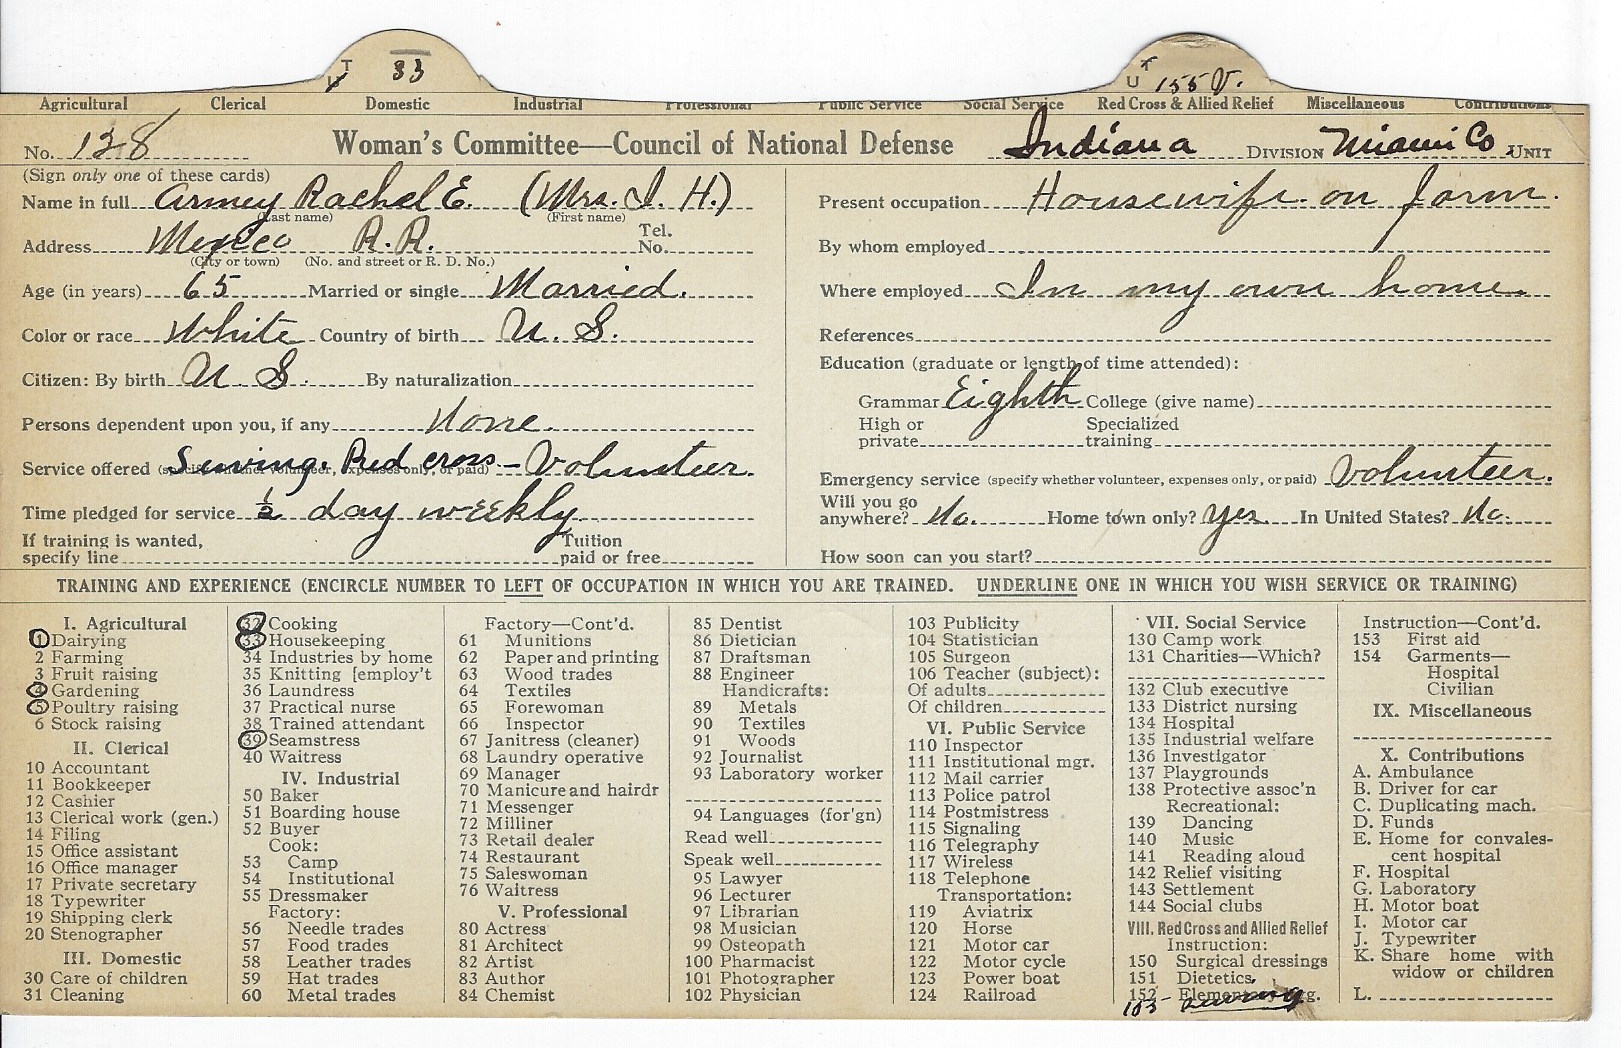 T 33
U T 155 V.
Agricultural Clerical Domestic Industrial Professional Public Service Social Service Red Cross & Allied Relief Miscellaneous Contributions
No. 128 Woman's Committee—Council of National Defense Indiana DIVISION Miami Co UNIT
(Sign only one of these cards)
Name in full Armey Rachel E. (Mrs. I. H.)
(Last name) (First name)
Address Mexico R.R. Tel. No.
(City or town) (No. and street or R. D. No.)
Age (in years) 65 Married or single Married.
Color or race White Country of birth U. S.
Citizen: By birth U. S. By naturalization
Persons dependent upon you, if any None.
Service offered (specify whether volunteer, expenses only, or paid) Sewing. Red cross - Volunteer.
Time pledged for service 1/2 day weekly
If training is wanted, specify line Tuition paid or free
Present occupation Housewife on farm.
By whom employed
Where employed In my own home.
References
Education (graduate or length of time attended):
Grammar Eighth College (give name)
High or private Specialized training
Emergency service (specify whether volunteer, expenses only, or paid) Volunteer.
Will you go anywhere? No. Home town only? Yes. In United States? No.
How soon can you start?
TRAINING AND EXPERIENCE (ENCIRCLE NUMBER TO LEFT OF OCCUPATION IN WHICH YOU ARE TRAINED. UNDERLINE ONE IN WHICH YOU WISH SERVICE OR TRAINING)
I. Agricultural
1 Dairying
2 Farming
3 Fruit raising
4 Gardening
5 Poultry raising
6 Stock raising
II. Clerical
10 Accountant
11 Bookkeeper
12 Cashier
13 Clerical work (gen.)
14 Filing
15 Office assistant
16 Office manager
17 Private secretary
18 Typewriter
19 Shipping clerk
20 Stenographer
III. Domestic
30 Care of children
31 Cleaning
32 Cooking
33 Housekeeping
34 Industries by home
35 Knitting [employ't
36 Laundress
37 Practical nurse
38 Trained attendant
39 Seamstress
40 Waitress
IV. Industrial
50 Baker
51 Boarding house
52 Buyer
Cook:
53 Camp
54 Institutional
55 Dressmaker
Factory:
56 Needle trades
57 Food trades
58 Leather trades
59 Hat trades
60 Metal trades
Factory—Cont'd.
61 Munitions
62 Paper and printing
63 Wood trades
64 Textiles
65 Forewoman
66 Inspector
67 Janitress (cleaner)
68 Laundry operative
69 Manager
70 Manicure and hairdr
71 Messenger
72 Milliner
73 Retail dealer
74 Restaurant
75 Saleswoman
76 Waitress
V. Professional
80 Actress
81 Architect
82 Artist
83 Author
84 Chemist
85 Dentist
86 Dietician
87 Draftsman
88 Engineer
Handicrafts:
89 Metals
90 Textiles
91 Woods
92 Journalist
93 Laboratory worker
94 Languages (for'gn)
Read well
Speak well
95 Lawyer
96 Lecturer
97 Librarian
98 Musician
99 Osteopath
100 Pharmacist
101 Photographer
102 Physician
103 Publicity
104 Statistician
105 Surgeon
106 Teacher (subject):
Of adults
Of children
VI. Public Service
110 Inspector
111 Institutional mgr.
112 Mail carrier
113 Police patrol
114 Postmistress
115 Signaling
116 Telegraphy
117 Wireless
118 Telephone
Transportation:
119 Aviatrix
120 Horse
121 Motor car
122 Motor cycle
123 Power boat
124 Railroad
VII. Social Service
130 Camp work
131 Charities—Which?
132 Club executive
133 District nursing
134 Hospital
135 Industrial welfare
136 Investigator
137 Playgrounds
138 Protective assoc'n
Recreational:
139 Dancing
140 Music
141 Reading aloud
142 Relief visiting
143 Settlement
144 Social clubs
VIII. Red Cross and Allied Relief
Instruction:
150 Surgical dressings
151 Dietetics
152 Elementary
sewing
Instruction—Cont'd.
153 First aid
154 Garments—
Hospital
Civilian
IX. Miscellaneous
X. Contributions
A. Ambulance
B. Driver for car
C. Duplicating mach.
D. Funds
E. Home for convales-
cent hospital
F. Hospital
G. Laboratory
H. Motor boat
I. Motor car
J. Typewriter
K. Share home with
widow or children
L.